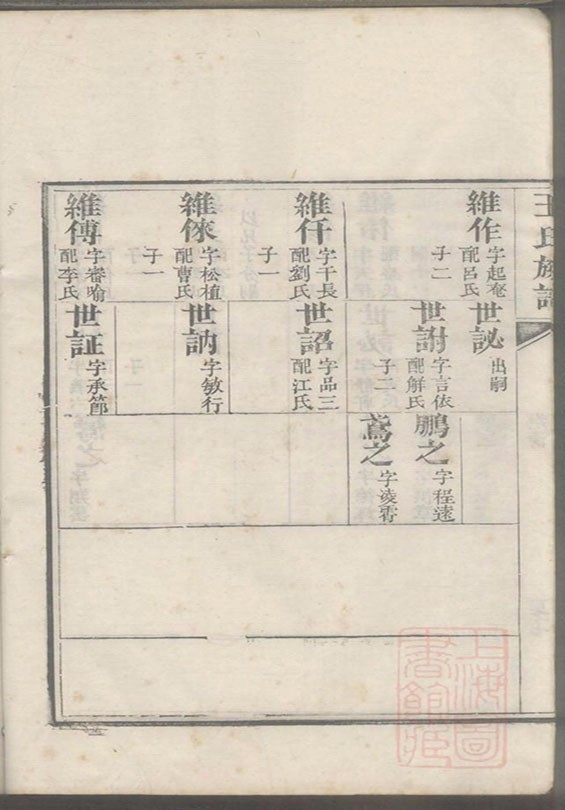 王氏族譜
維作
字起庵
配呂氏
子二
世訫
出嗣
世謝
字言依
配解氏
子二
鵬之
字程遠
鳶之
字淩霄
維仟
字千長
配劉氏
子一
世詔
字品三
配江氏
維倈
字松植
配曹氏
子一
世訥
字敏行
維傳
字
配李氏
世証
字承節
上海圖書館藏